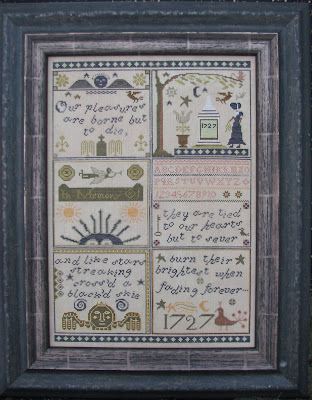 Our pleasures
are borne but
to die,
1727
In Memory of
ABCDEFGHIJKLMNO
PQRSTUVWXYZ
12345678910
they are tied
to our hearts
but to sever
and like stars
streaking
cross'd a
black'd skie
burn their
brightest when
fading forever...
1727